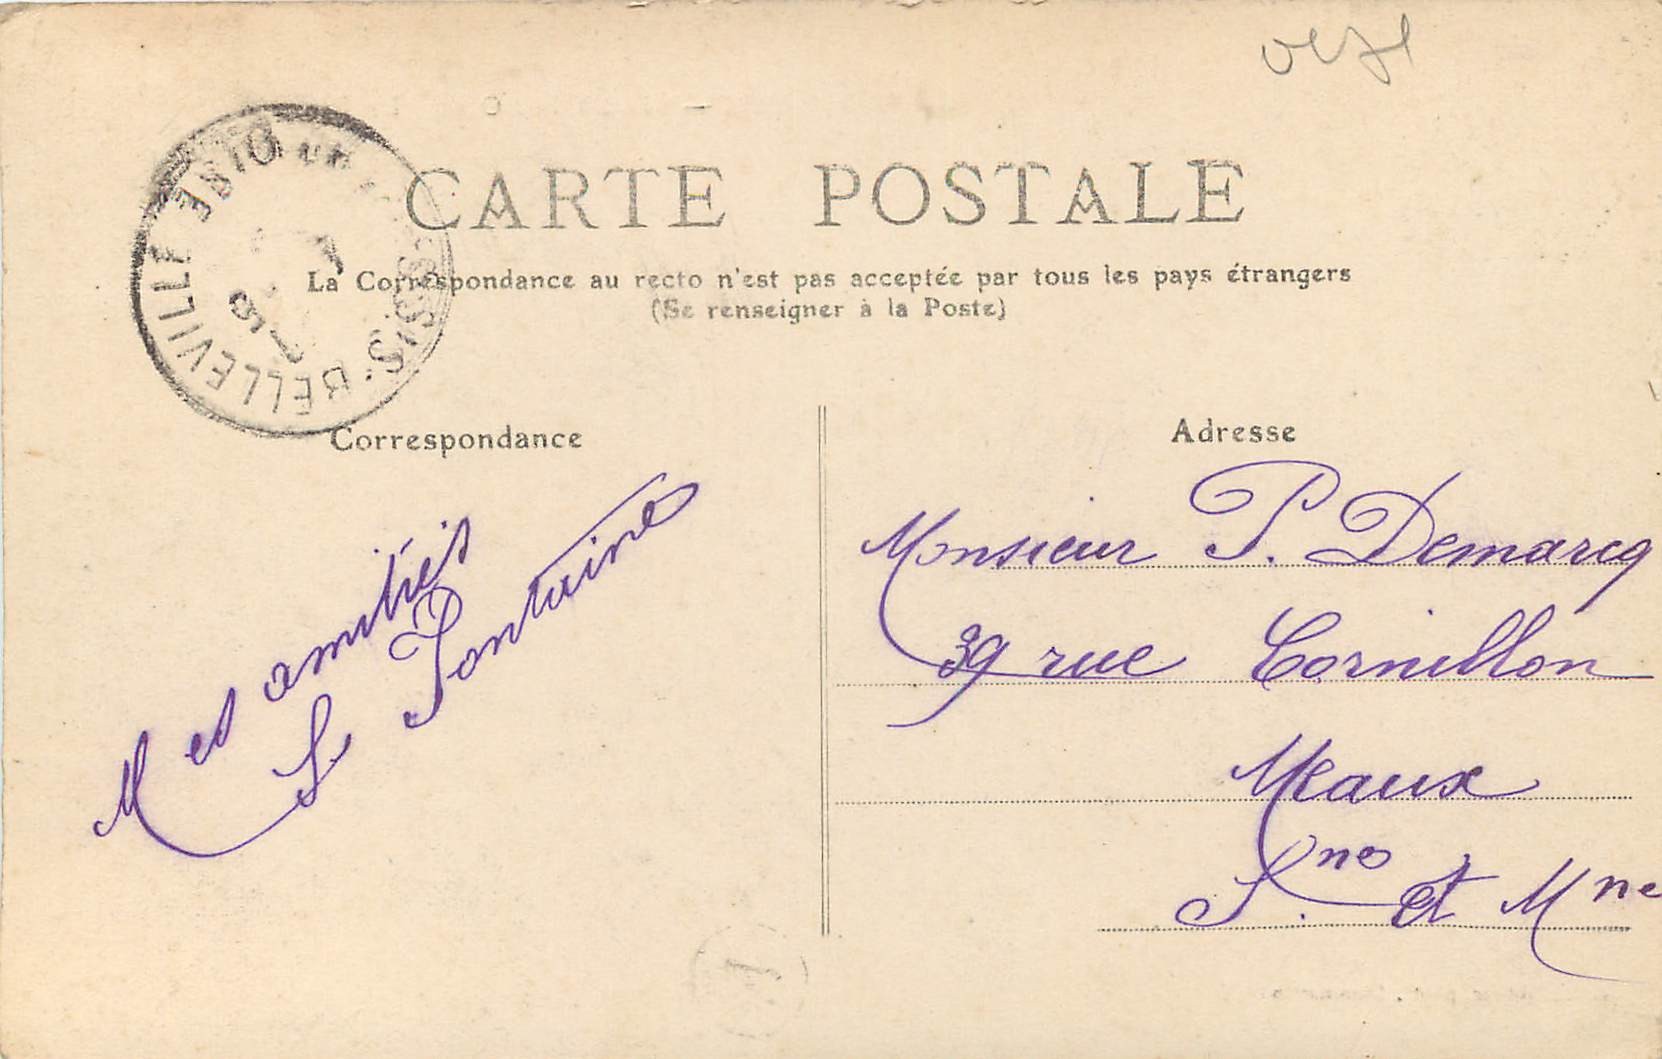 CARTE POSTALE
La Correspondance au recto n'est pas acceptée par tous les pays étrangers
(Se renseigner à la Poste)
PLESSIS-BELLEVILLE OISE
Correspondance
Mes amitiés
L Fontaine
Adresse
Monsieur P. Demarcq
39 rue Cornillon
Meaux
S.ne et Mne